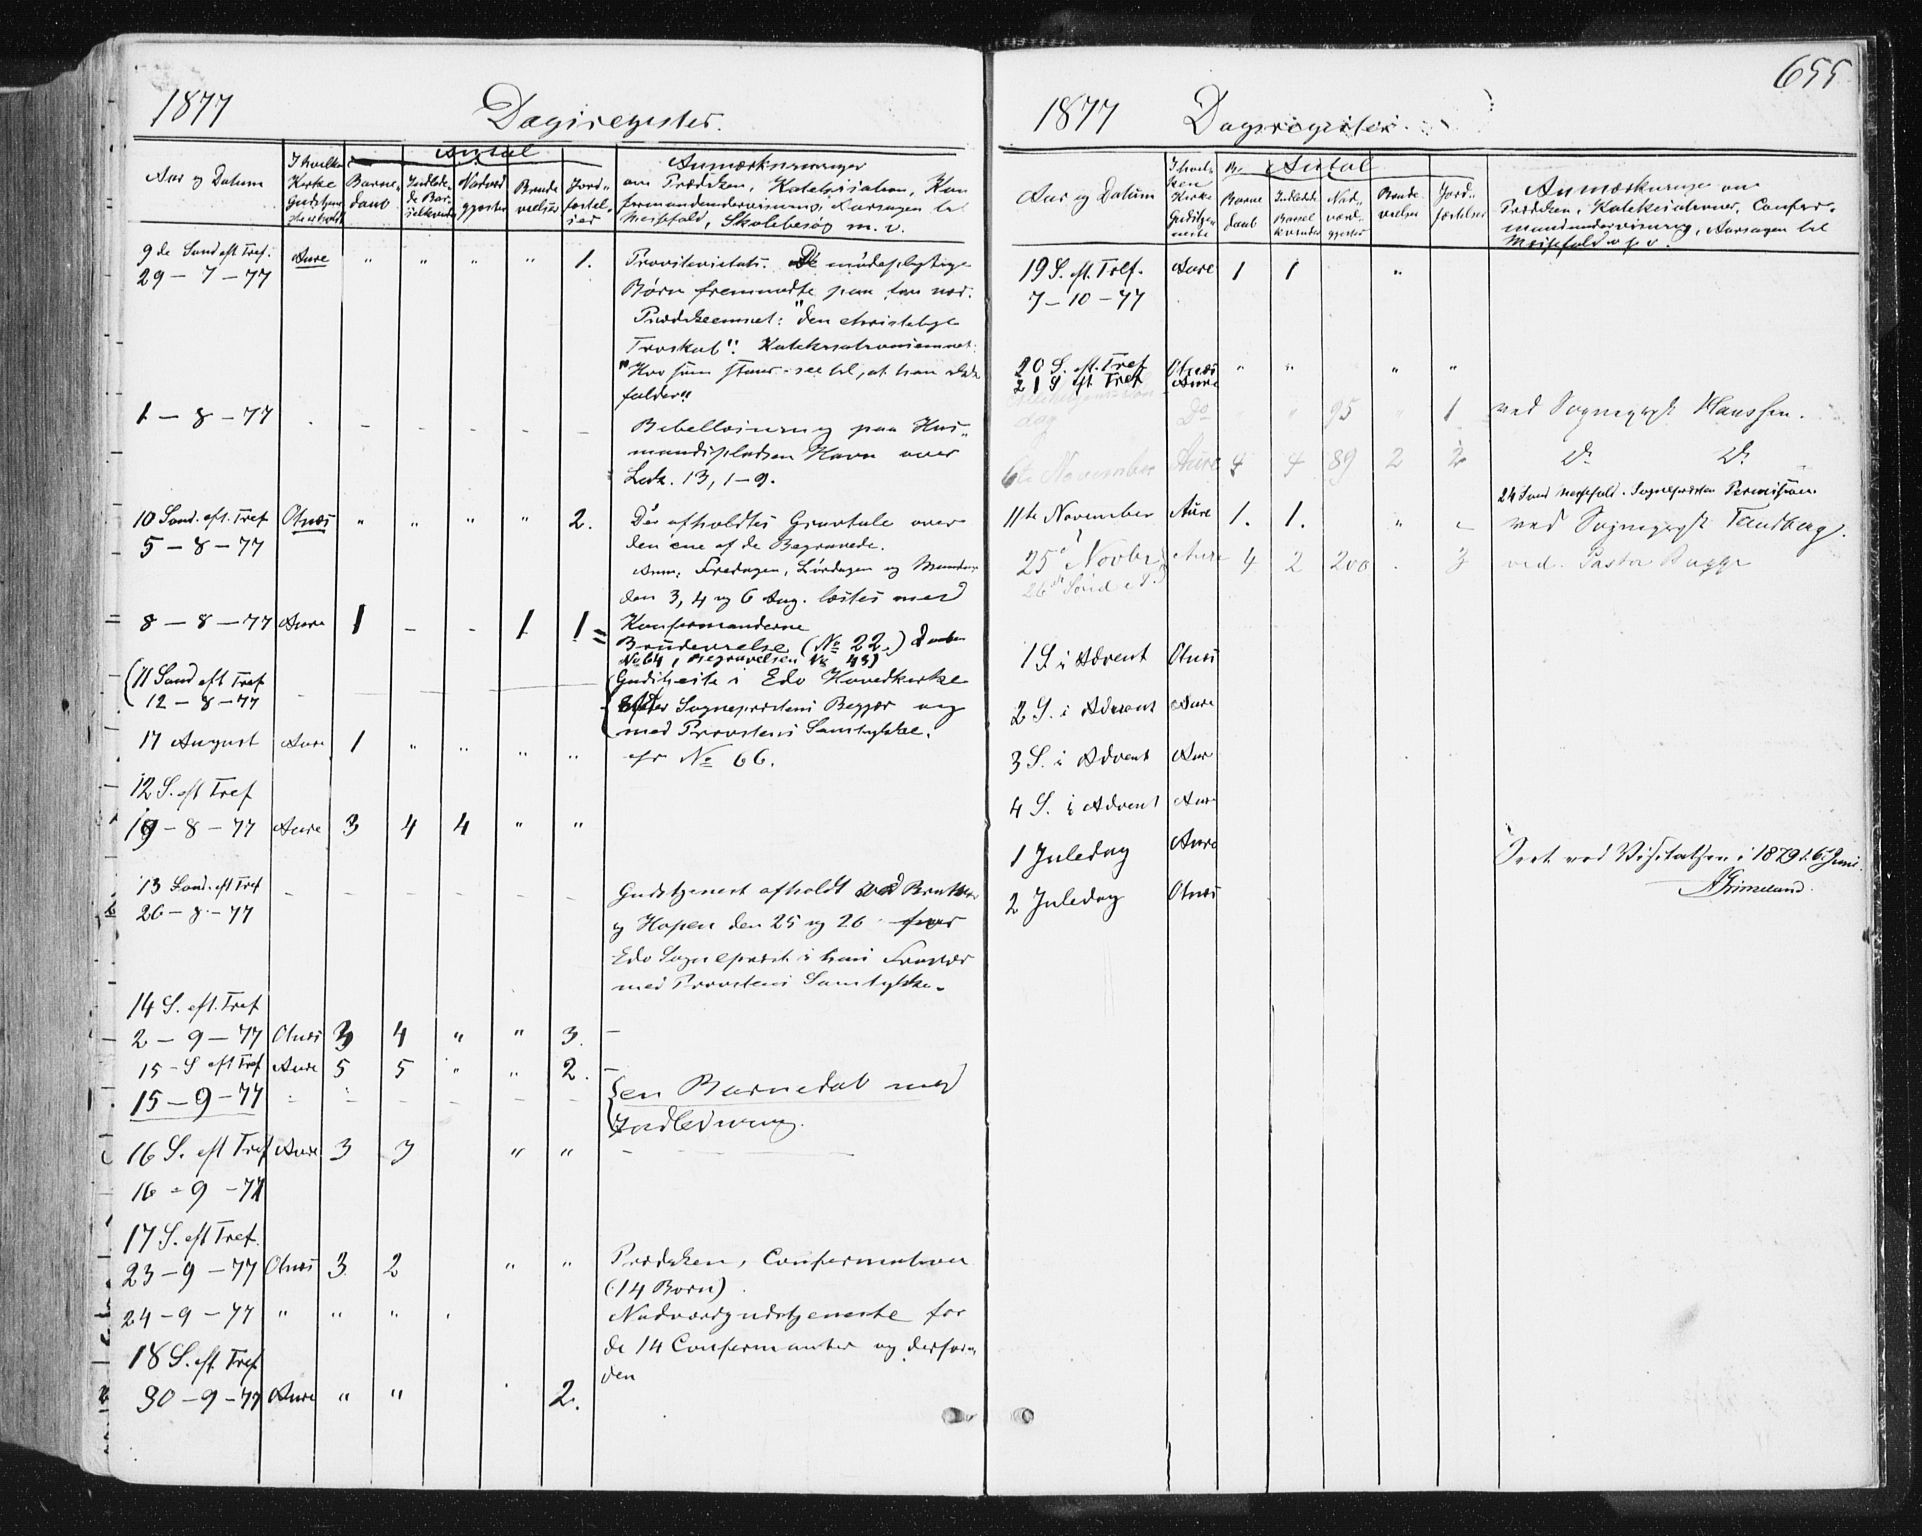 1877 Dagsregister.
Aar og Datum
I hvilken Kirke Gudstjeneste er holdt
Antal
Barnedaab
Indledede Barselkvinder
Nadverdgjester
Brudevielser
Jordfæstelser
Anmærkninger
om Prædiken, Katekisation, Kon
firmandundervisning, Aarsagen til
Messefald, Skolebesøg m. v.
9de Sønd eft Tref. Aure " " " " 1. Provstevisitats. De mødepligtige
29 - 7 - 77 Børn fremmødte paa fem nær.
Prædikeemnet: "den christelige
Troskab". Katekisationsemnet:
"Hvo som staar - see til, at han ikke
falder"
1 - 8 - 77 - - - - - Bibellæsning paa Hus-
mandspladsen Havn over
Luk. 13, 1-9.
10 Sønd. eft. Tref Otnæs " " " " 2. Der afholdtes Gravtale over
5 - 8 - 77 den ene af de Begravede.
Anm: Fredagen, Lørdagen og Mandag
den 3, 4 og 6 Aug. læstes med
Konfirmanderne
8 - 8 - 77 Aure 1 - - 1 1 = Brudevielse (No 22.) Daaben
No 64, Begravelsen No 43)
11 Sønd eft Tref Gudstjeneste i Edø Hovedkirke
12 - 8 - 77 efter Sognepræstens Begjær og
med Provstens Samtykke.
17 August Aure 1 " " " " cfr No 66.
12 S. eft Tref
19 - 8 - 77 Aure 3 4 4 " "
13 Sønd. eft Tref - - - - - Gudstjenest afholdt ved
26 - 8 - 77 og Hopen den 25 og 26 for
Edø Sognepræst i hans Fravær
med Provstens Samtykke.
14 S. eft. Tref
2 - 9 - 77 Otnæs 3 4 " " 3. -
15 - S eft Tref Aure 5 5 " " 2. -
15 - 9 - 77 - - - - - en Barnedaab med
Indledning.
16 S. eft Tref Aure 3 3 " " -
16 - 9 - 77
17 S. eft Tref.
23 - 9 - 77 Otnæs 3 2 " " Prædiken, Confirmation
(14 Børn)
24 - 9 - 77 " " " Nadverdgudstjeneste for
de 14 Confirmanter og
18 S. eft. Tref
30 - 9 - 77 Aure " " 2.
655
1877 Dagsregister.
Aar og Datum
I hvilken Kirke Gudstjeneste
Antal
Barnedaab
Indledede Barselkvinder
Nadverdgjester
Brudevielser
Jordfæstelser
Anmærkninger om
Prædiken, Katekisationer, Confir-
mandundervisning, Aarsagen til
Messefald o s v.
19 S. eft. Tref. Aure 1 1 "
7 - 10 - 77
20 S. eft. Tref Otnæs " " " "
21 S eft. Tref Aure
dag Do " " 95 " 1 ved Sognepræst Hanssen.
6te November Aure 4 4 89 2 2 Do Do
24 Sønd Messefald. Sognepræsten Permission
11te November Aure 1. 1. " - ved Sognepræst Tandberg.
25 Novbr Aure 4 2 200 . 3 ved Pastor Bugge
26de Sønd e T
1 S i Advent Otnæs
2 S. i Advent Aure
3 S. i Advent Aur
4 S. i Advent Aure
1 Juledag Aure
2 Juledag Otnæs
Seet ved Visitatsen i 1879 d. 6 Juni.
Grimelund.